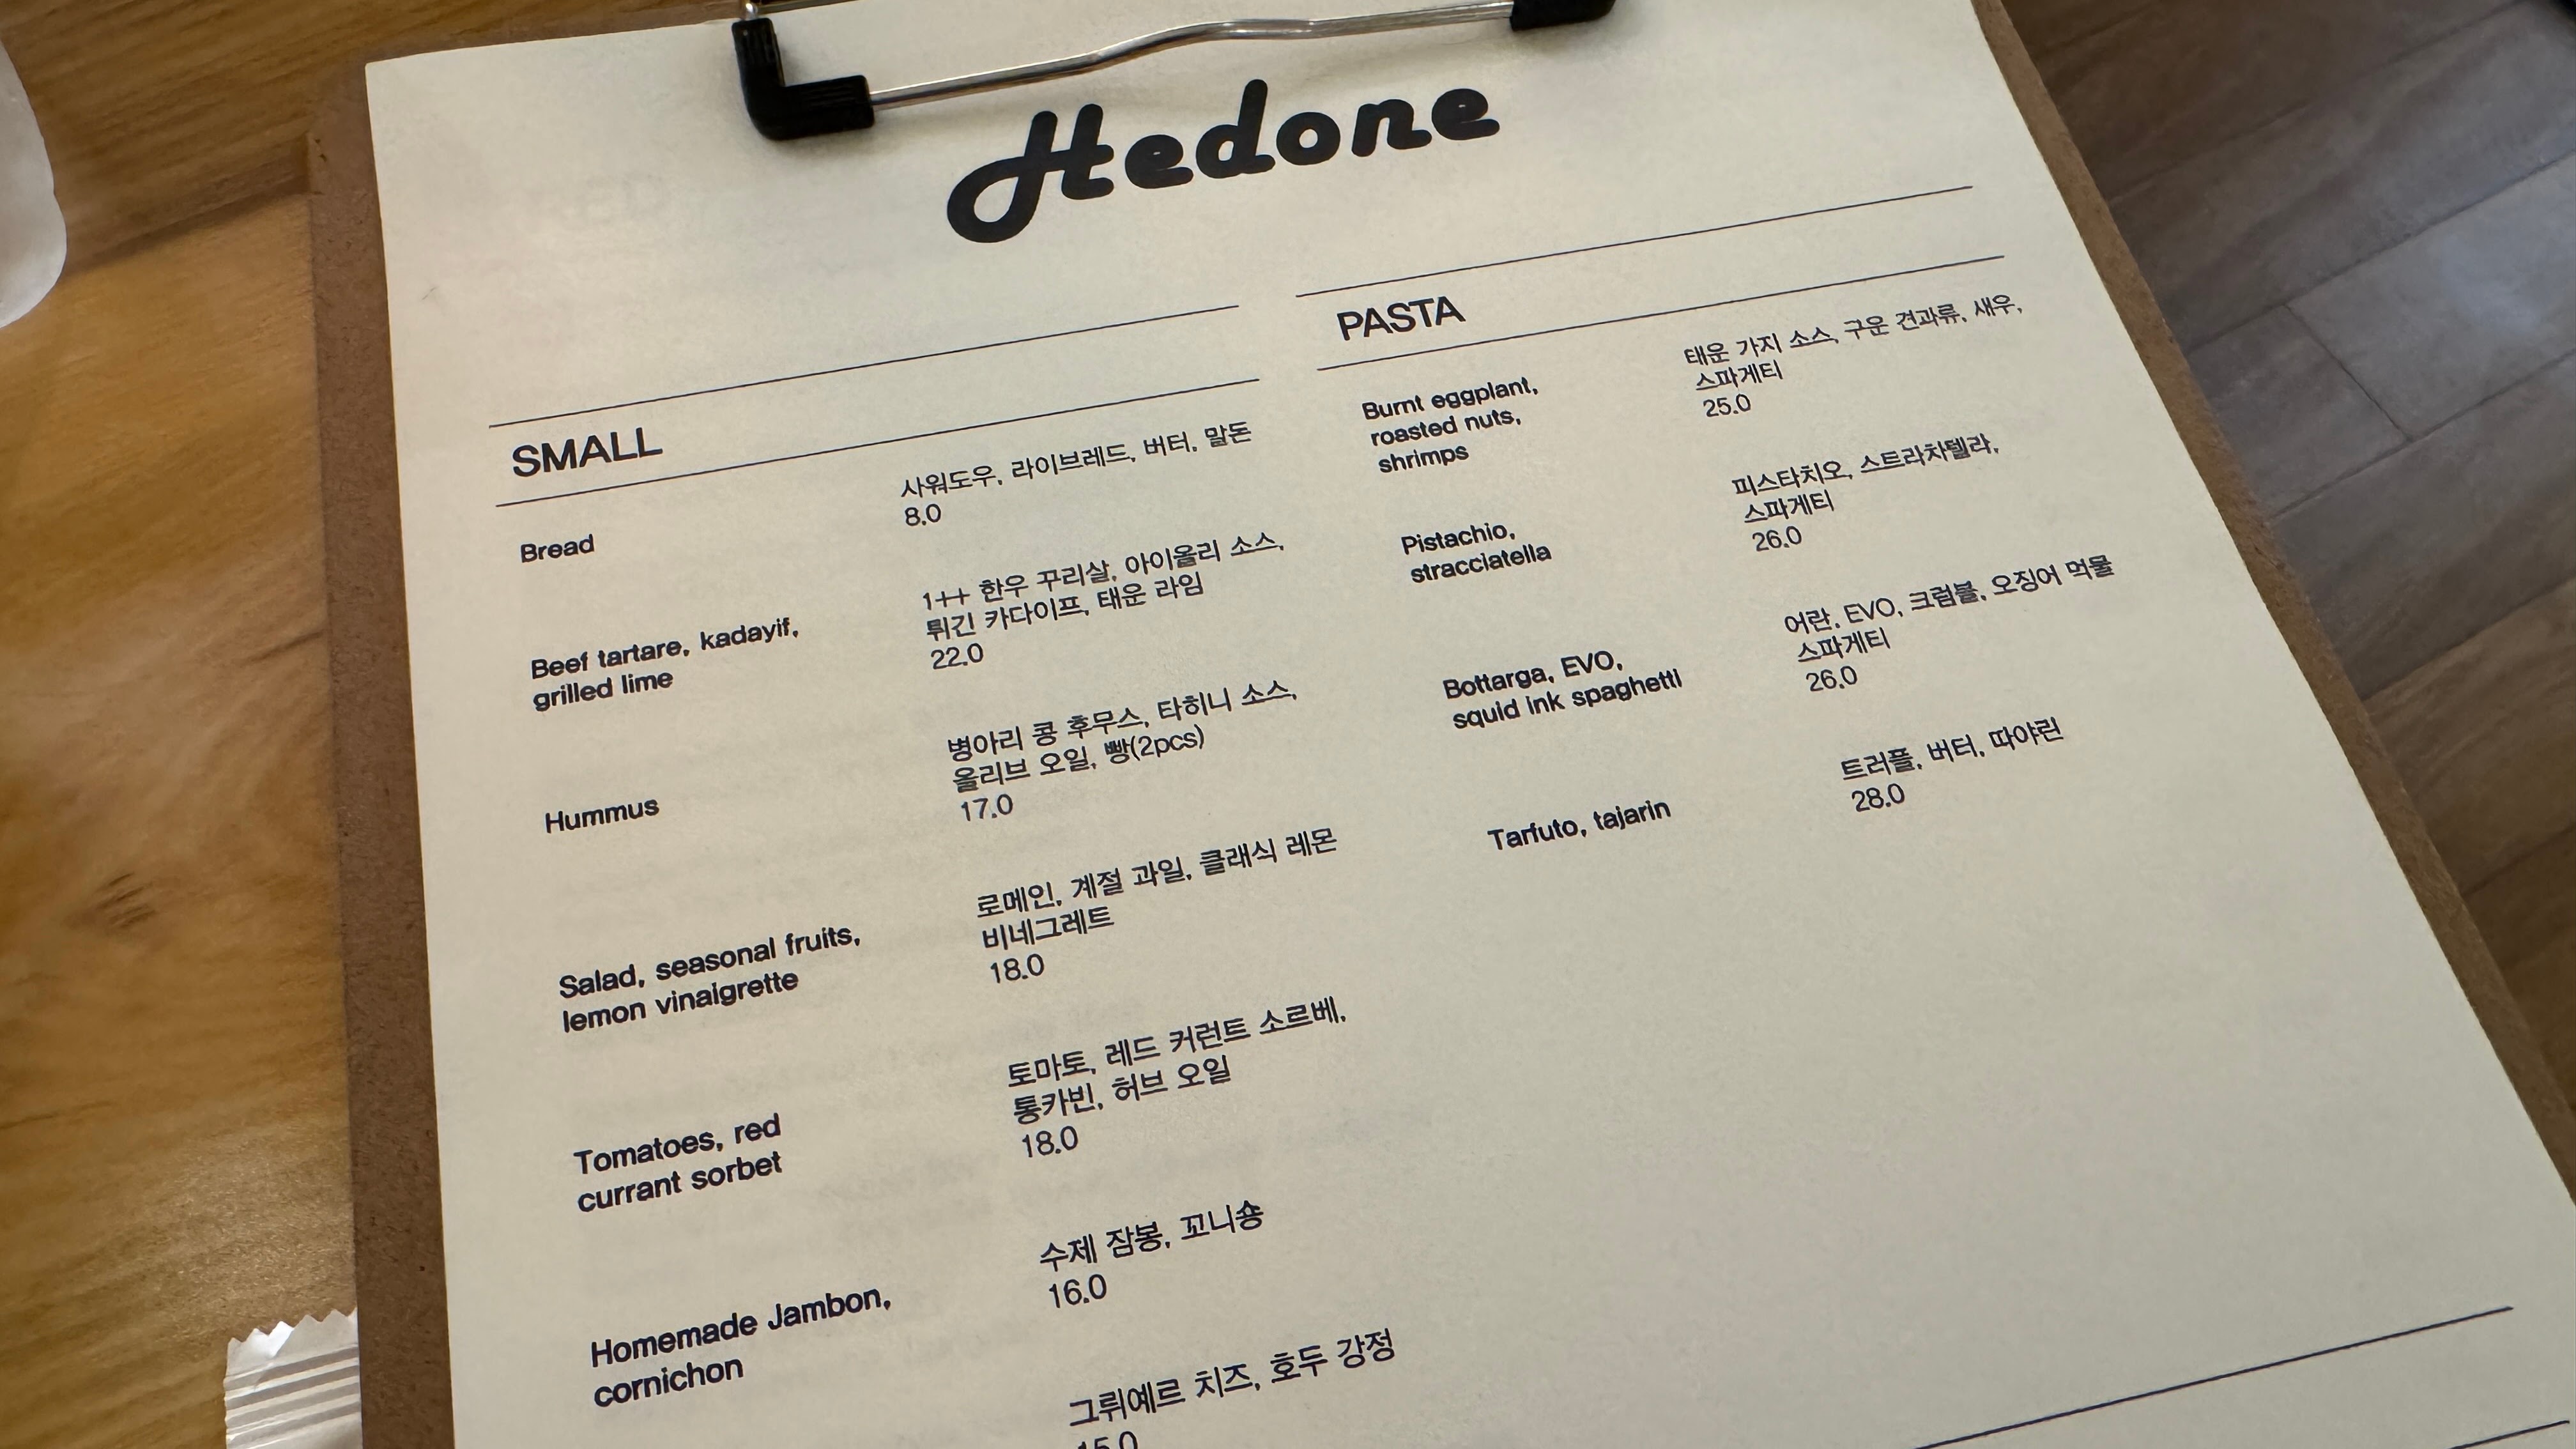 Hedone
SMALL
Bread
사워도우, 라이브레드, 버터, 말돈
8.0
Beef tartare, kadayif,
grilled lime
1++ 한우 꾸리살, 아이올리 소스,
튀긴 카다이프, 태운 라임
22.0
Hummus
병아리 콩 후무스, 타히니 소스,
올리브 오일, 빵(2pcs)
17.0
Salad, seasonal fruits,
lemon vinaigrette
로메인, 계절 과일, 클래식 레몬
비네그레트
18.0
Tomatoes, red
currant sorbet
토마토, 레드 커런트 소르베,
통카빈, 허브 오일
18.0
Homemade Jambon,
cornichon
수제 잠봉, 꼬니숑
16.0
그뤼예르 치즈, 호두 강정
15.0
PASTA
Burnt eggplant,
roasted nuts,
shrimps
태운 가지 소스, 구운 견과류, 새우,
스파게티
25.0
Pistachio,
stracciatella
피스타치오, 스트라차텔라,
스파게티
26.0
Bottarga, EVO,
squid ink spaghetti
어란, EVO, 크럼블, 오징어 먹물
스파게티
26.0
Tarfuto, tajarin
트러플, 버터, 따야린
28.0